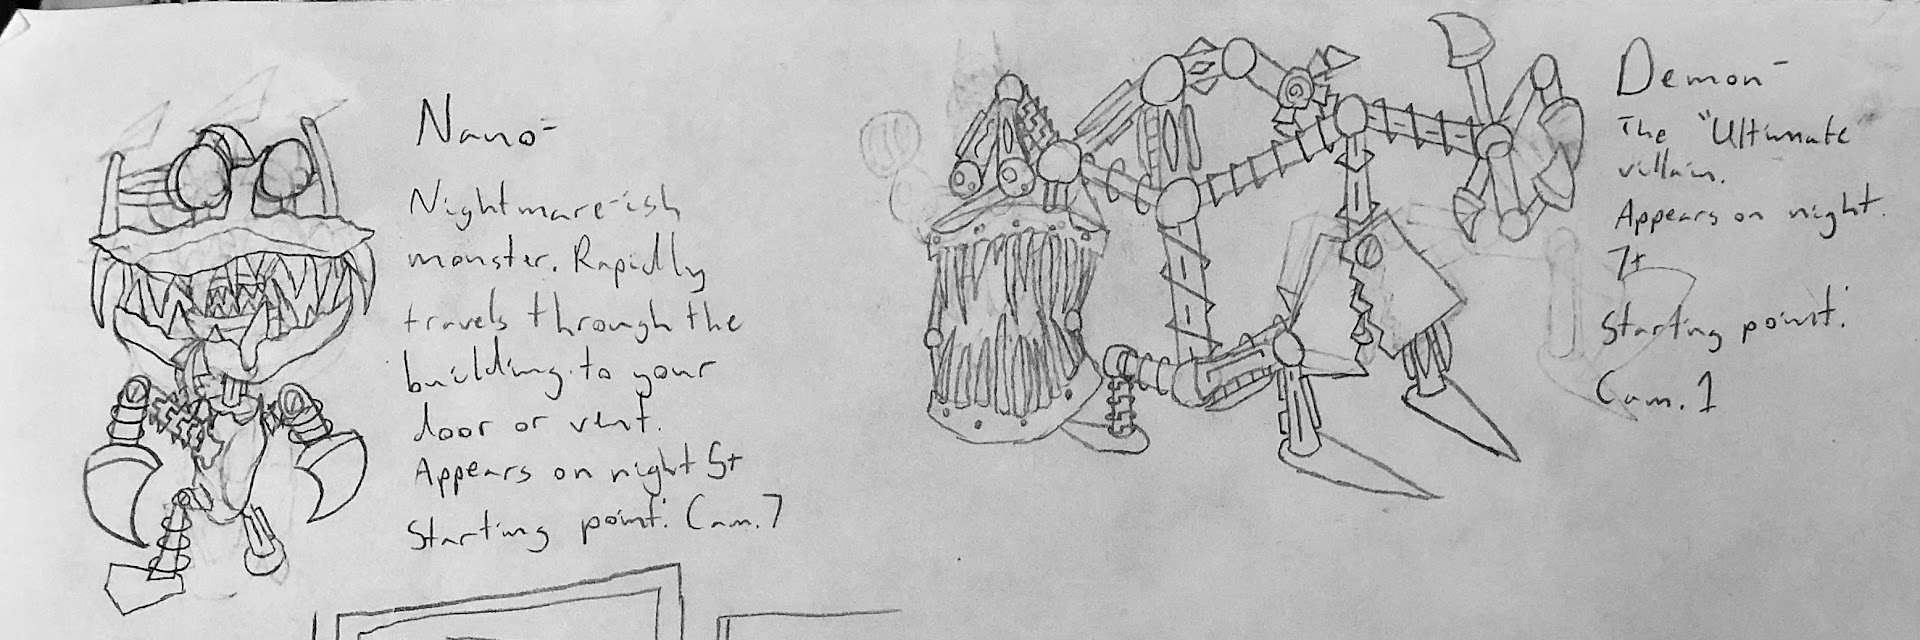 Nano-
Nightmare-ish
monster. Rapidly
travels through the
building to your
door or vent.
Appears on night 5+
Starting point: Cam. 7
Demon-
The "Ultimate"
villain.
Appears on night
7+
Starting point:
Cam. 1